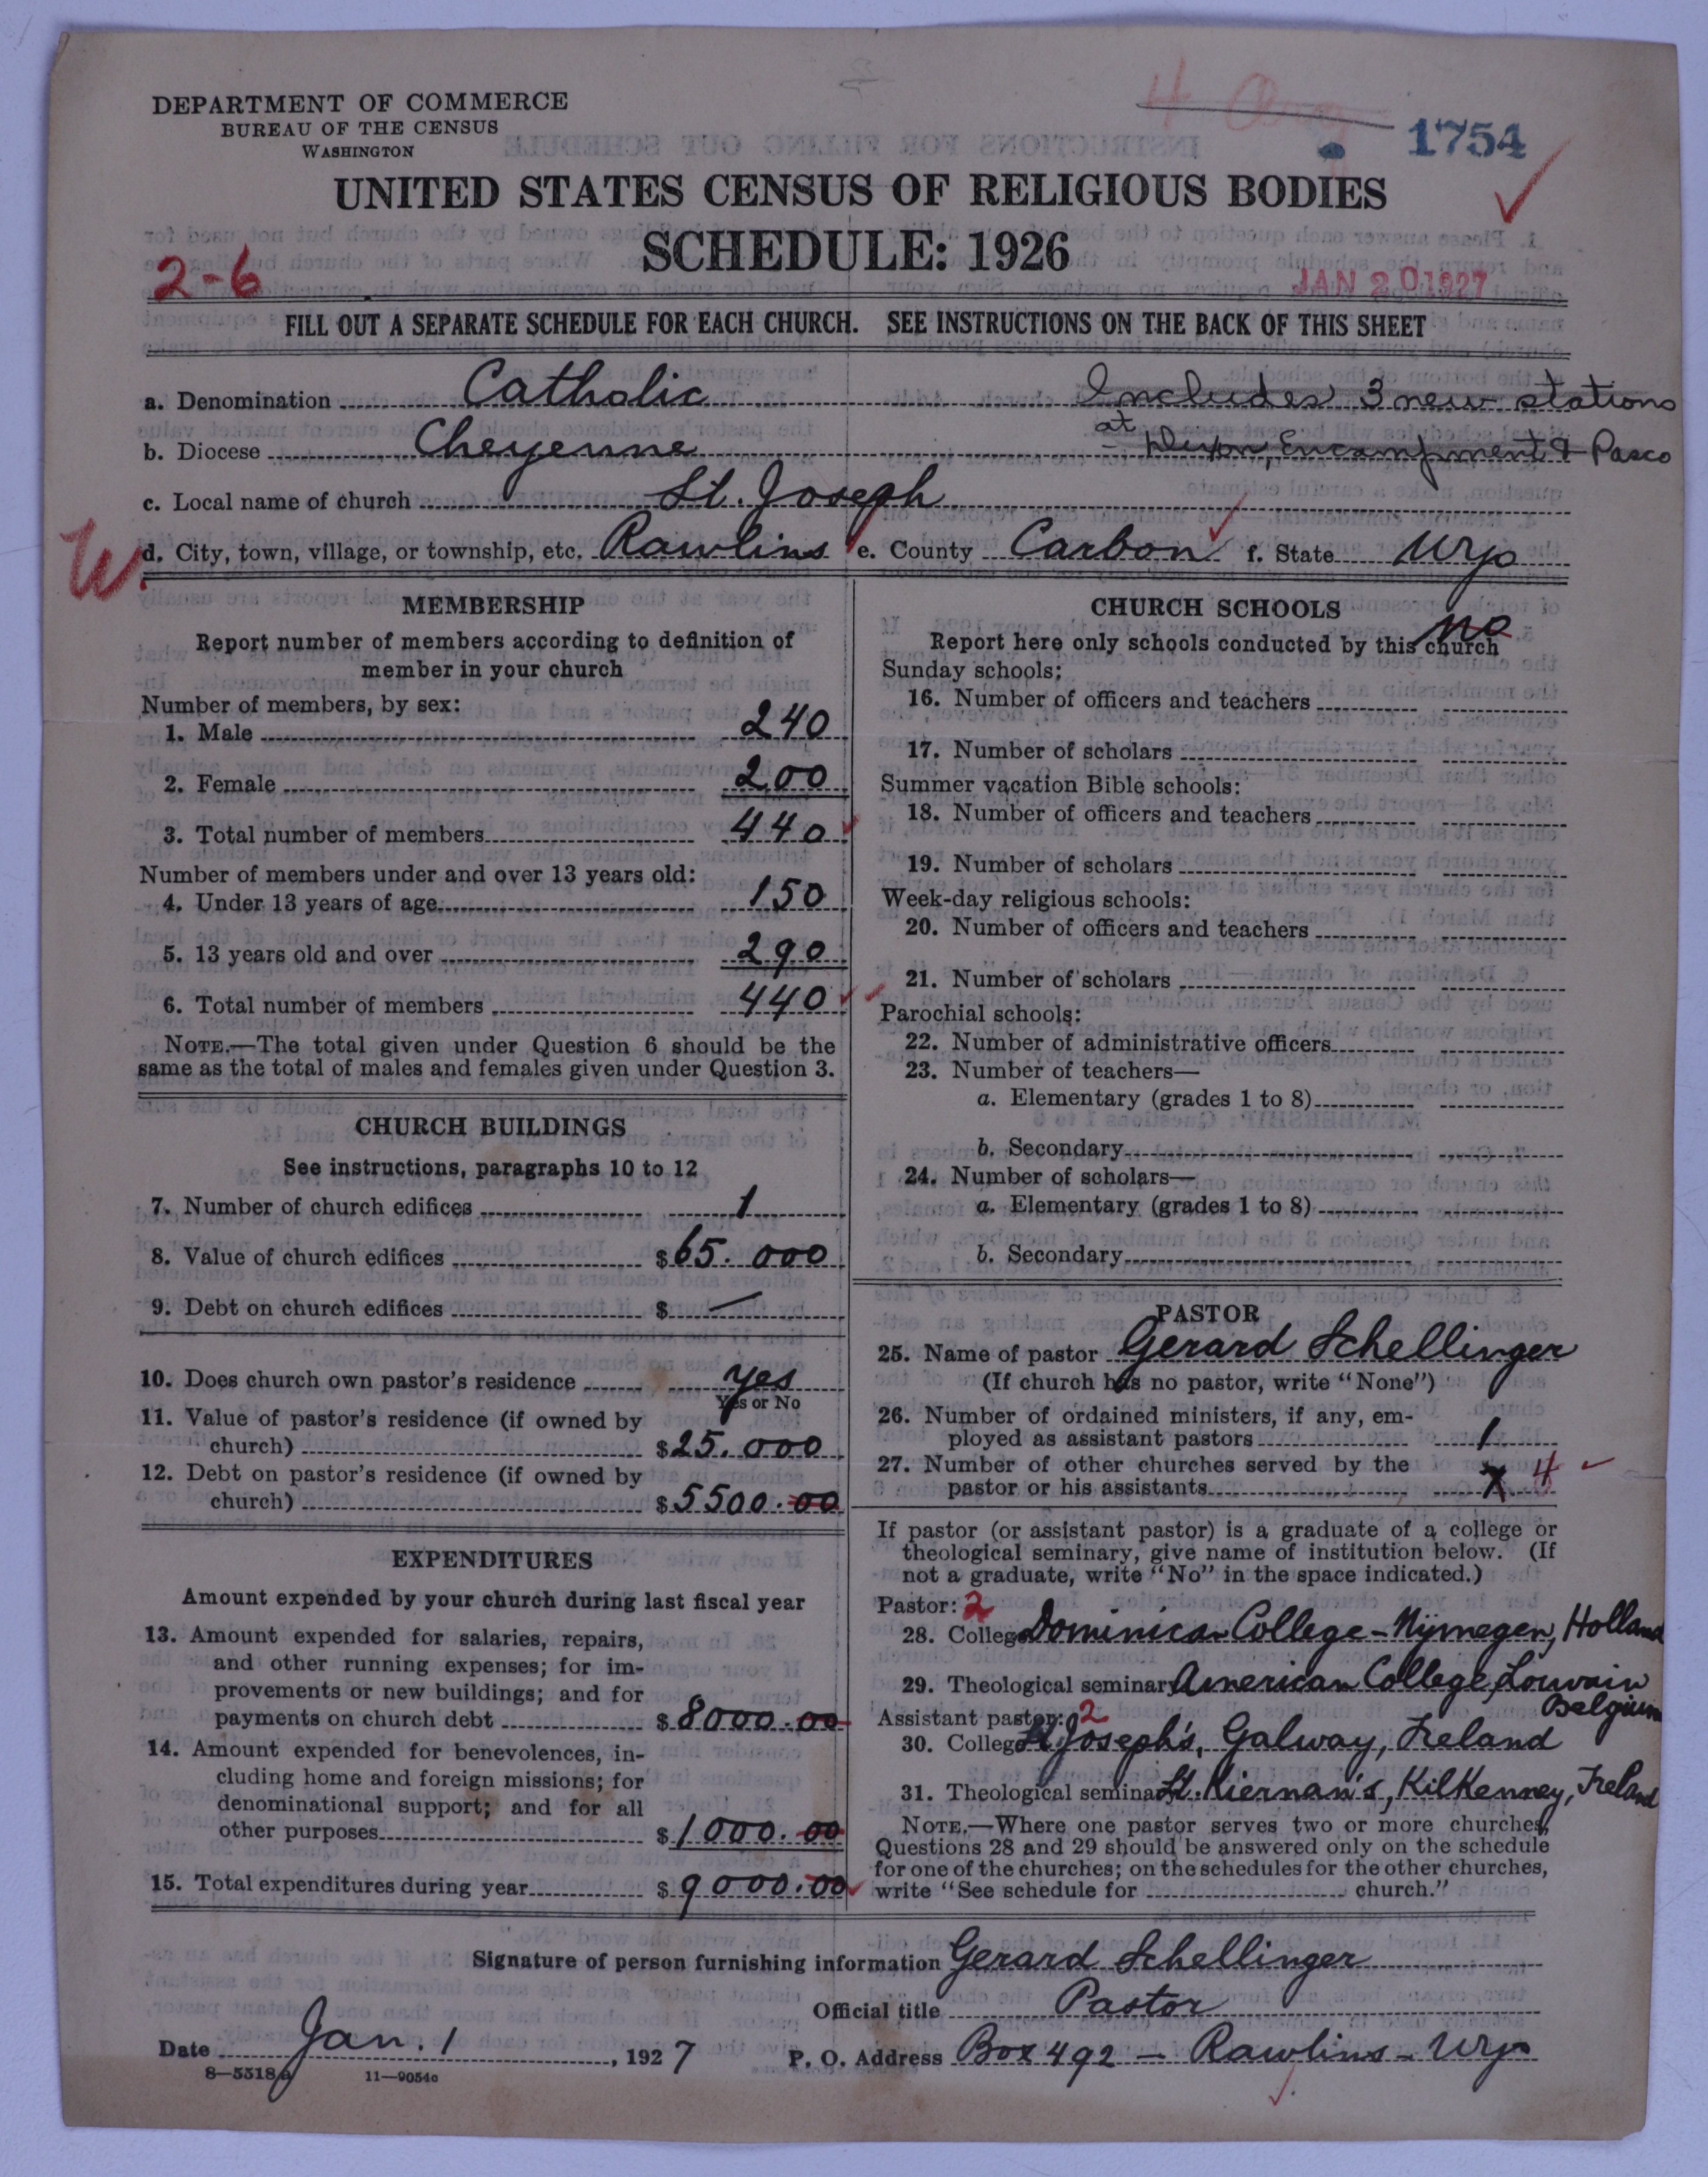 DEPARTMENT OF COMMERCE
BUREAU OF THE CENSUS
WASHINGTON
1754
UNITED STATES CENSUS OF RELIGIOUS BODIES
SCHEDULE: 1926
2-6
JAN 20 1927
FILL OUT A SEPARATE SCHEDULE FOR EACH CHURCH. SEE INSTRUCTIONS ON THE BACK OF THIS SHEET
a. Denomination Catholic
Includes 3 new stations
at Dixon, Encampment & Pasco
b. Diocese Cheyenne
c. Local name of church St. Joseph
W.
d. City, town, village, or township, etc. Rawlins e. County Carbon f. State Wyo
MEMBERSHIP
Report number of members according to definition of
member in your church
Number of members, by sex:
1. Male 240
2. Female 200
3. Total number of members 440
Number of members under and over 13 years old:
4. Under 13 years of age 150
5. 13 years old and over 290
6. Total number of members 440
NOTE.—The total given under Question 6 should be the
same as the total of males and females given under Question 3.
CHURCH BUILDINGS
See instructions, paragraphs 10 to 12
7. Number of church edifices 1
8. Value of church edifices $65.000
9. Debt on church edifices $ —
10. Does church own pastor's residence yes
Yes or No
11. Value of pastor's residence (if owned by
church) $25.000
12. Debt on pastor's residence (if owned by
church) $5500.00
EXPENDITURES
Amount expended by your church during last fiscal year
13. Amount expended for salaries, repairs,
and other running expenses; for im-
provements or new buildings; and for
payments on church debt $8000.00
14. Amount expended for benevolences, in-
cluding home and foreign missions; for
denominational support; and for all
other purposes $1000.00
15. Total expenditures during year $9000.00
CHURCH SCHOOLS
no
Report here only schools conducted by this church
Sunday schools:
16. Number of officers and teachers
17. Number of scholars
Summer vacation Bible schools:
18. Number of officers and teachers
19. Number of scholars
Week-day religious schools:
20. Number of officers and teachers
21. Number of scholars
Parochial schools:
22. Number of administrative officers
23. Number of teachers—
a. Elementary (grades 1 to 8)
b. Secondary
24. Number of scholars—
a. Elementary (grades 1 to 8)
b. Secondary
PASTOR
25. Name of pastor Gerard Schellinger
(If church has no pastor, write "None")
26. Number of ordained ministers, if any, em-
ployed as assistant pastors 1
27. Number of other churches served by the
pastor or his assistants 4
If pastor (or assistant pastor) is a graduate of a college or
theological seminary, give name of institution below. (If
not a graduate, write "No" in the space indicated.)
Pastor: 2
28. College Dominican College - Nijmegen, Holland
29. Theological seminary American College, Louvain
Belgium
Assistant pastor: 2
30. College St Joseph's, Galway, Ireland
31. Theological seminary St. Kiernan's, KilKenney, Ireland
NOTE.—Where one pastor serves two or more churches,
Questions 28 and 29 should be answered only on the schedule
for one of the churches; on the schedules for the other churches,
write "See schedule for church."
Signature of person furnishing information Gerard Schellinger
Official title Pastor
Date Jan. 1, 1927 P. O. Address Box 492 - Rawlins - Wyo
8—5518a 11—9054c